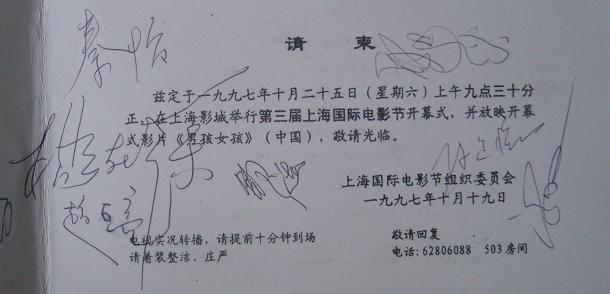 秦怡
请 柬
兹定于一九九七年十月二十五日（星期六）上午九点三十分
正，在上海影城举行第三届上海国际电影节开幕式，并放映开幕
式影片《男孩女孩》（中国），敬请光临。
上海国际电影节组织委员会
一九九七年十月十九日
电视实况转播，请提前十分钟到场
请着装整洁、庄严
敬请回复
电话：62806088 503 房间